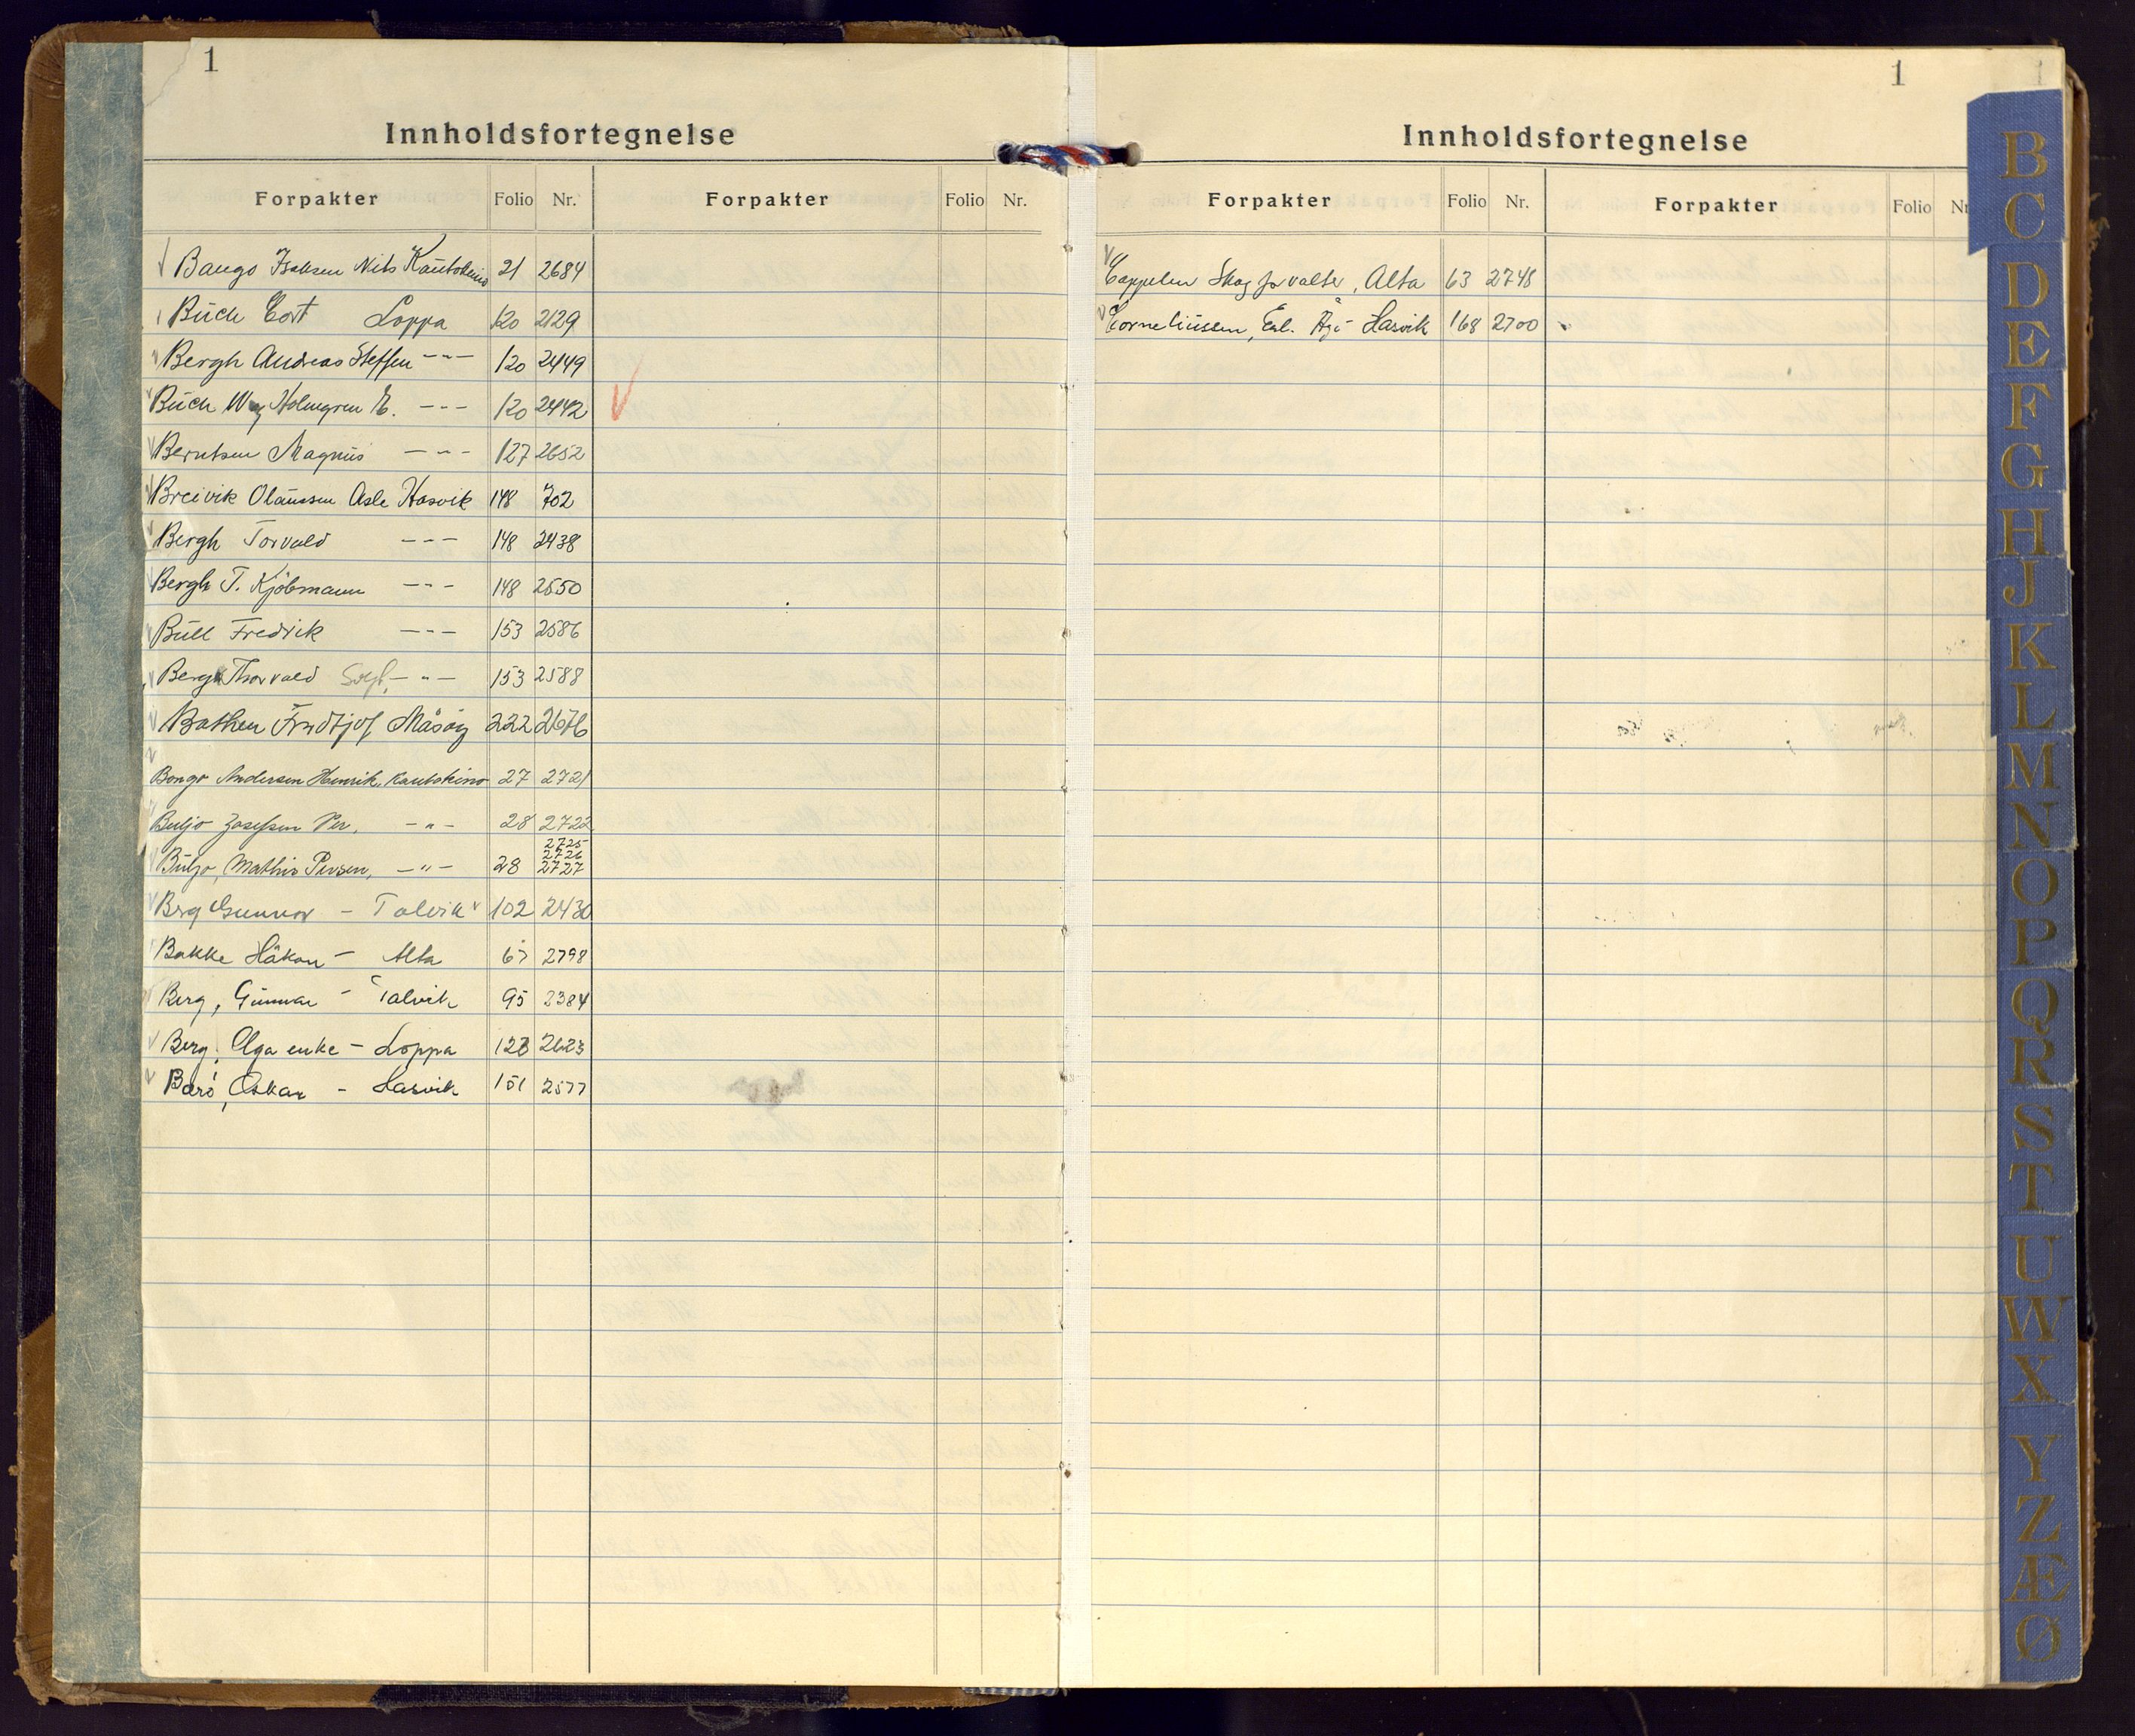 1
Innholdsfortegnelse
Forpakter Folio Nr. Forpakter Folio Nr.
Baugo Isaksen Nils Kautokeino 21 2684
Buck Cort Loppa 120 2129
Bergh Andreas Steffen -"- 120 2449
Buck Holmgren E. -"- 120 2442
Berntsen Magnus -"- 127 2652
Breivik Olaussen Asle Hasvik 148 702
Bergh Torvald -"- 148 2438
Bergh T. Kjøbmann -"- 148 2550
Bull Fredrik -"- 153 2586
Bergh Thorvald -"- 153 2588
Bathen Fridtjof Måsøy 222 2676
Bongo Andersen Henrik, Kautokeino 27 2721
Buljo Josefsen Per, -"- 28 2722
2725
2726
Buljo, Mathis Persen, -"- 28 2727
Berg Gunnar - Talvik 102 2430
Bakke Håkon - Alta 67 2798
Berg, Gunnar - Talvik 95 2384
Berg, Olga enke - Loppa 128 2623
Barø, Oskar - Hasvik 151 2577
1
Innholdsfortegnelse
Forpakter Folio Nr. Forpakter Folio Nr
Cappelen Skogforvalter, Alta 63 2748
Corneliussen, Hasvik 168 2700
B
C
D
E
F
G
H
J
K
L
M
N
O
P
Q
R
S
T
U
W
X
Y
Z
Æ
Ø